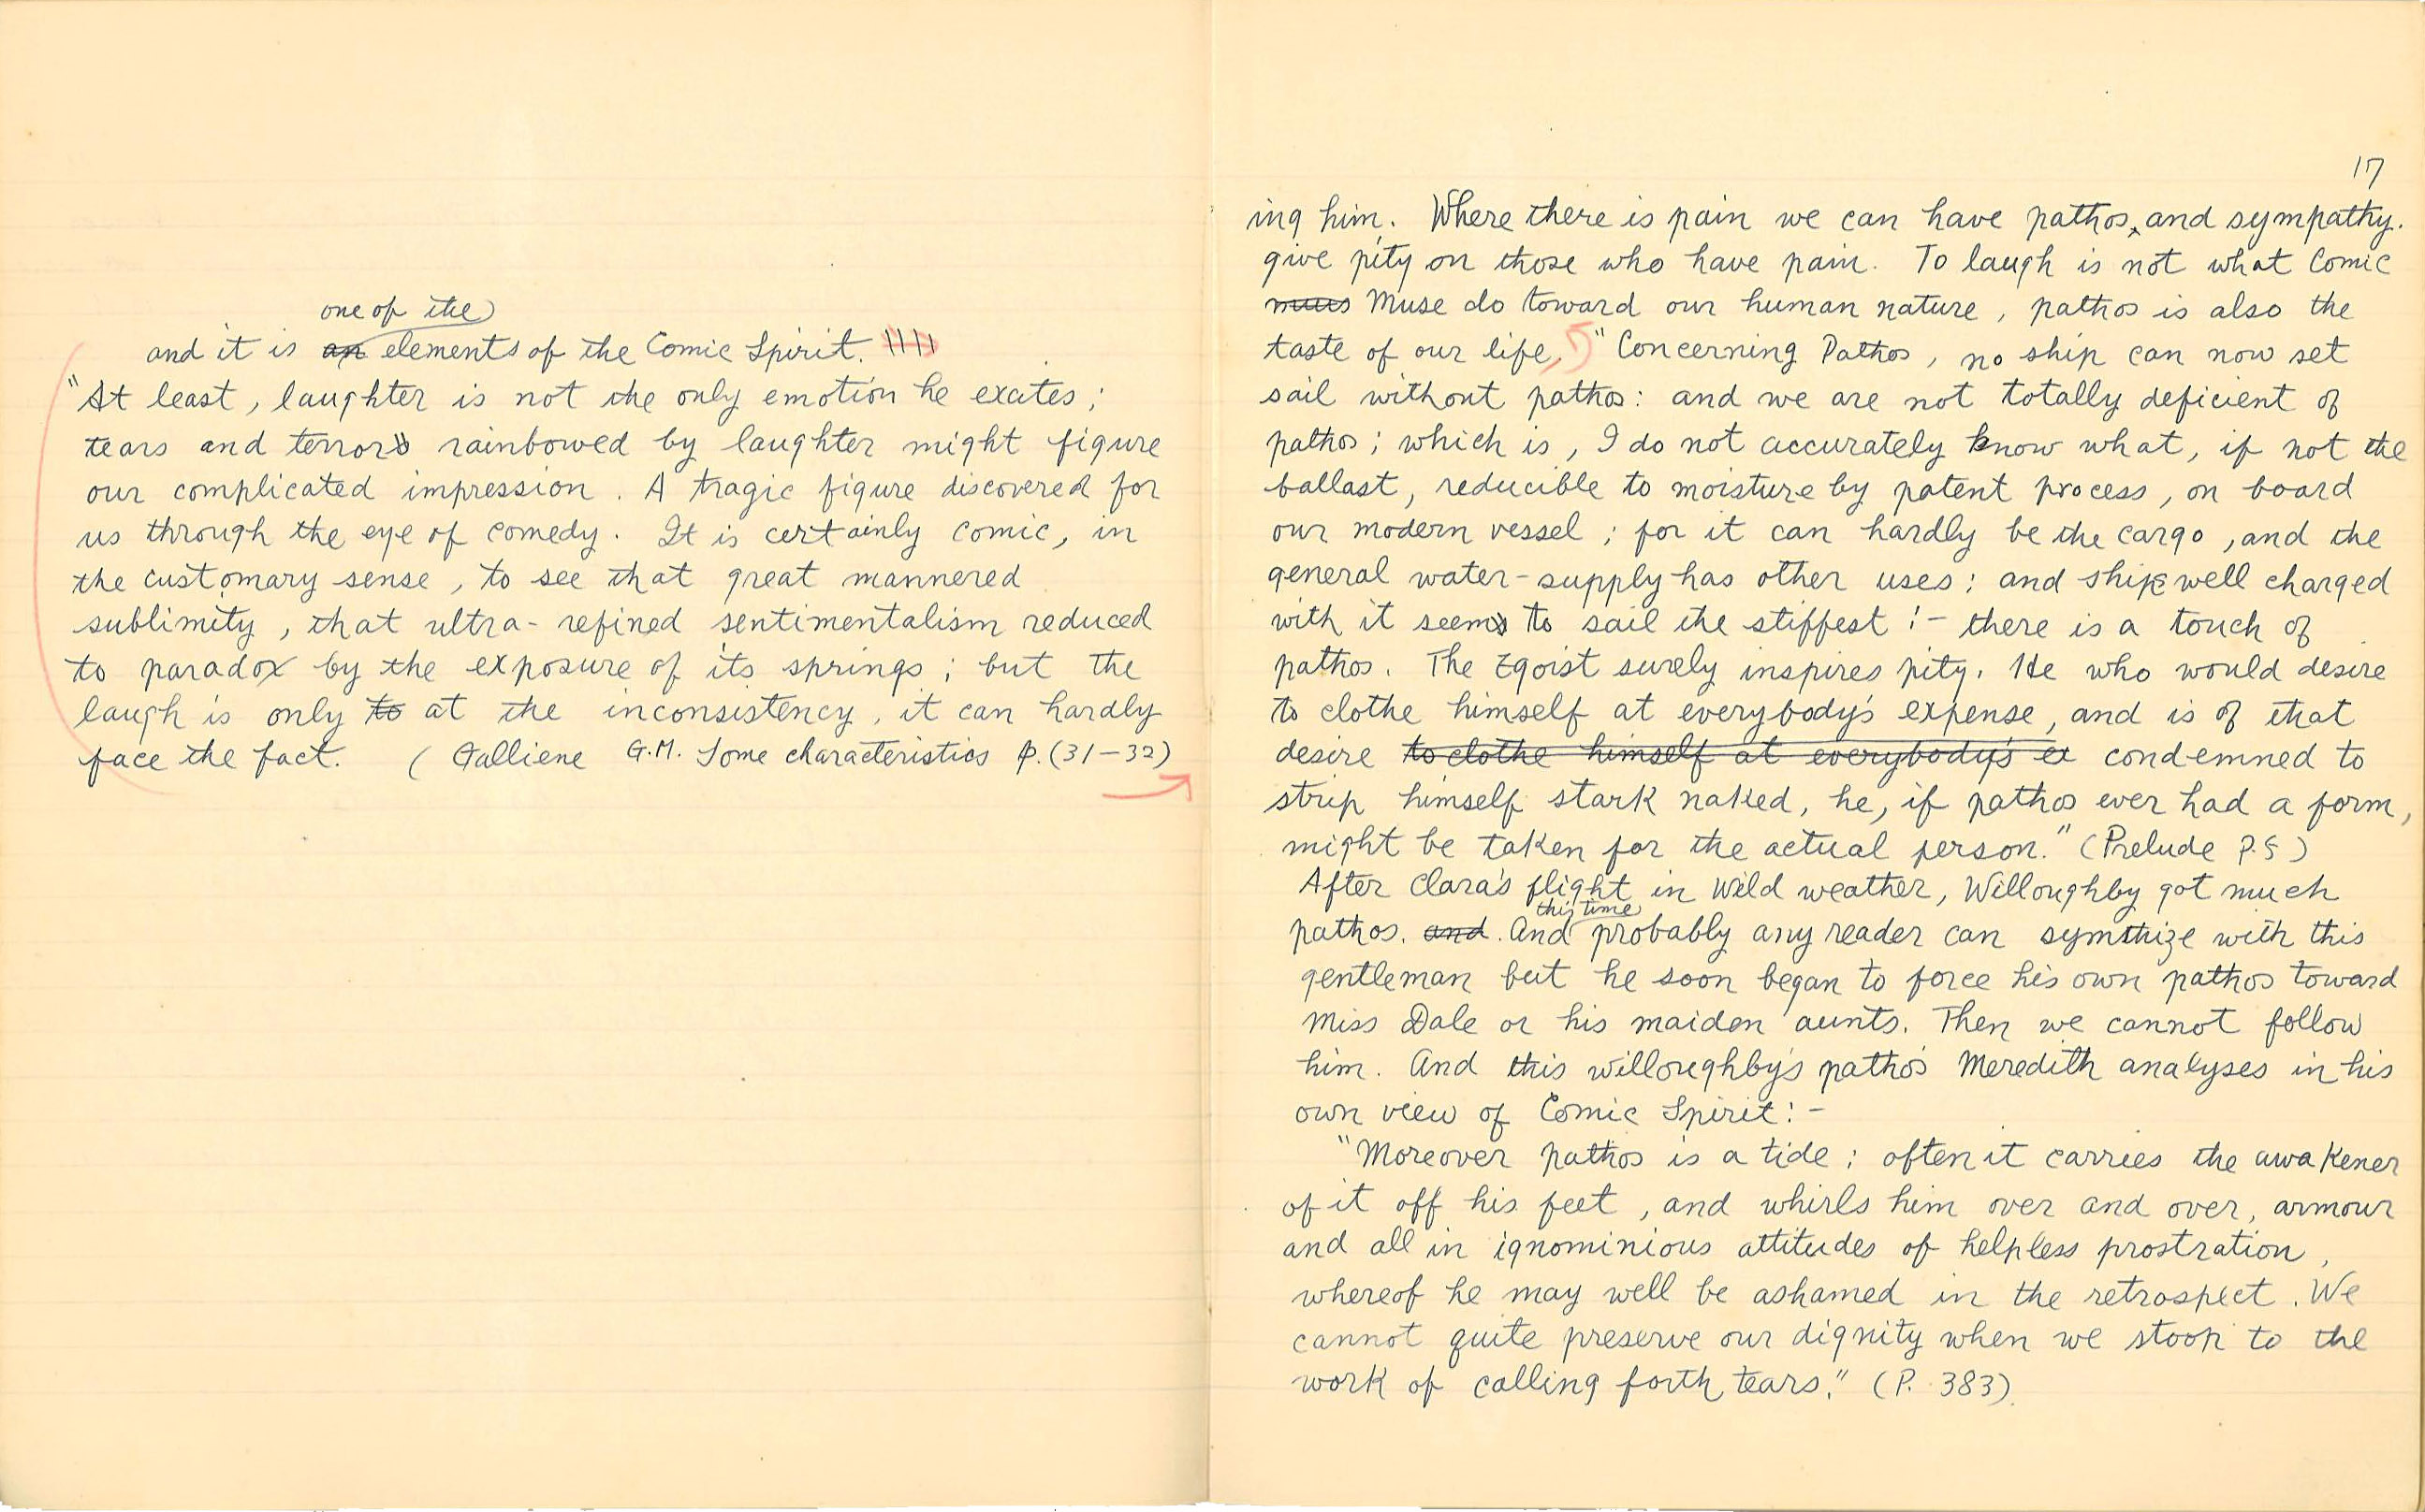 one of the
and it is an elements of the Comic Spirit.
"At least, laughter is not the only emotion he excites;
tears and terrors rainbowed by laughter might figure
our complicated impression. A tragic figure discovered for
us through the eye of comedy. It is certainly comic, in
the customary sense, to see that great mannered
sublimity, that ultra-refined sentimentalism reduced
to paradox by the exposure of its springs; but the
laugh is only to at the inconsistency, it can hardly
face the fact. (Galliene G.M. Some characteristics p.(31-32)
17
ing him. Where there is pain we can have pathos, and sympathy.
give pity on those who have pain. To laugh is not what Comic
Muse do toward our human nature, pathos is also the
taste of our life, "Concerning Pathos, no ship can now set
sail without pathos: and we are not totally deficient of
pathos; which is, I do not accurately know what, if not the
ballast, reducible to moisture by patent process, on board
our modern vessel; for it can hardly be the cargo, and the
general water-supply has other uses; and ships well charged
with it seems to sail the stiffest:- there is a touch of
pathos. The Egoist surely inspires pity. He who would desire
to clothe himself at everybody's expense, and is of that
desire to clothe himself at everybody's ex condemned to
strip himself stark naked, he, if pathos ever had a form,
might be taken for the actual person." (Prelude P.5)
After Clara's flight in Wild weather, Willoughby got much
this time
pathos. and. And probably any reader can symthize with this
gentleman but he soon began to force his own pathos toward
Miss Dale or his maiden aunts. Then we cannot follow
him. And this willoughby's pathos Meredith analyses in his
own view of Comic Spirit:-
"Moreover pathos is a tide: often it carries the awakener
of it off his feet, and whirls him over and over, armour
and all in ignominious attitudes of helpless prostration,
whereof he may well be ashamed in the retrospect. We
cannot quite preserve our dignity when we stoop to the
work of calling forth tears." (P. 383)